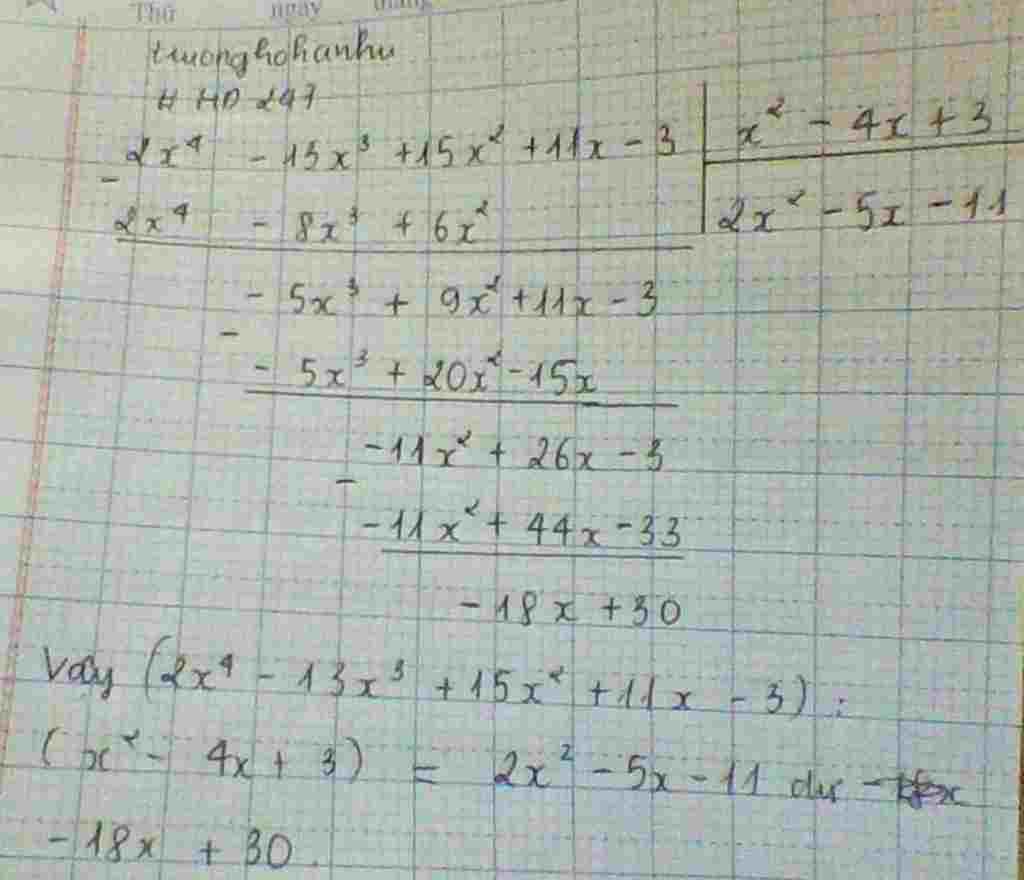 Thứ ngày tháng
truonghohanhu
H HD 247
2x⁴ - 13x³ + 15x² + 11x - 3 | x² - 4x + 3
-
2x⁴ - 8x³ + 6x² | 2x² - 5x - 11
- 5x³ + 9x² + 11x - 3
-
- 5x³ + 20x² - 15x
-11x² + 26x - 3
-
-11x² + 44x - 33
-18x + 30
Vậy (2x⁴ - 13x³ + 15x² + 11x - 3) :
(x² - 4x + 3) = 2x² - 5x - 11 dư
-18x + 30.